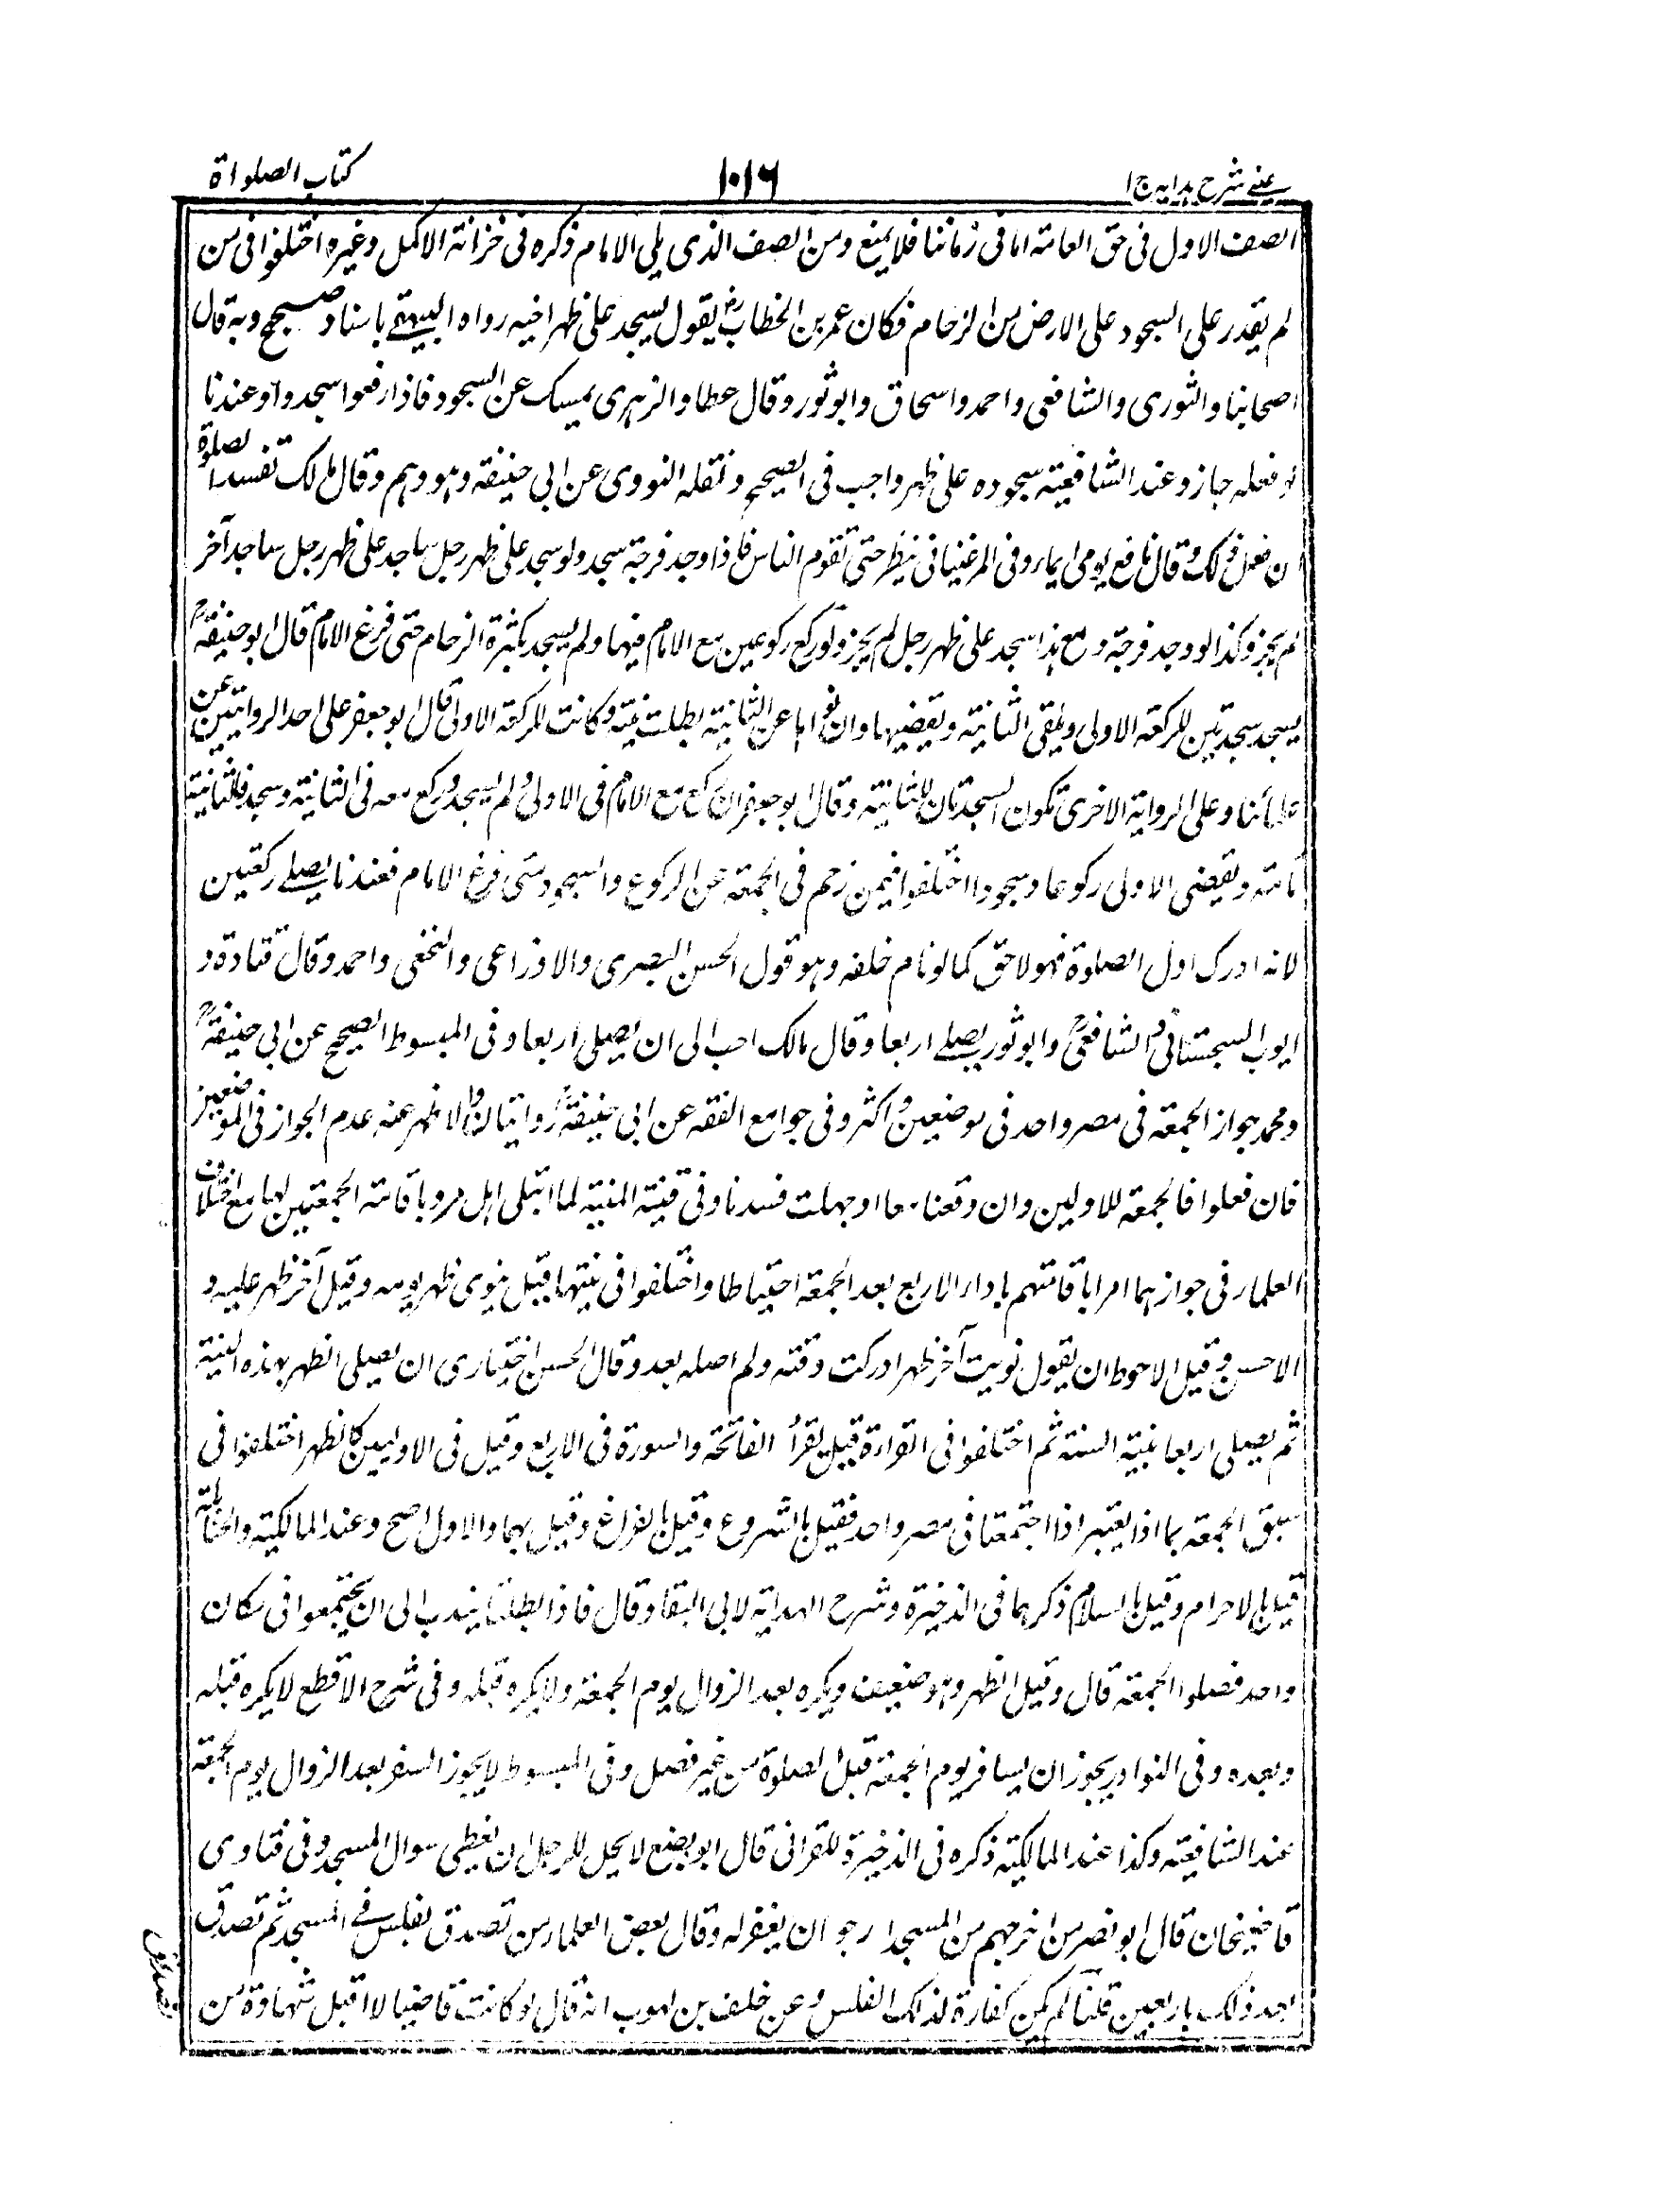 عینی شرح ہدایہ ج ۱
۱۰۱۶
کتاب الصلواة
الصف الاول فی حق العامة اما فی زماننا فلا یمنع ومن الصف الذی یلی الامام ذکره فی خزانة الاکمل وغیره اختلفوا فی من
لم یقدر علی السجود علی الارض من الزحام فکان عمر بن الخطاب رض یقول یسجد علی ظهر اخیه رواه البیهقی باسناد صحیح وبه قال
اصحابنا والثوری والشافعی واحمد واسحاق وابو ثور وقال عطا والزهری یمسک عن السجود فاذا رفعوا سجدوا وعندنا
لو فعله جاز وعند الشافعیة سجوده علی ظهر واجب فی الصحیح ونقله النووی عن ابی حنیفة وهو وهم وقال مالک تفسد الصلوة
ان فعل ذلک وقال نافع یومی ایماء وفی المرغینانی ینتظر حتی تقوم الناس فاذا وجد فرجة سجد ولو سجد علی ظهر رجل ساجد علی ظهر رجل ساجد آخر
لم یجز وکذا لو وجد فرجة ومع هذا سجد علی ظهر رجل لم یجز ولو رکع رکوعین مع الامام فیها ولم یسجد بکثرة الزحام حتی فرغ الامام قال ابو حنیفة رح
یسجد سجدتین للرکعة الاولی ویلقی الثانیة ویقضیها وان نواها عن الثانیة بطلت نیته وکانت للرکعة الاولی قال ابو جعفر علی احد الروایتین عن
علمائنا وعلی الروایة الاخری تکون السجدتان للثانیة وقال ابو جعفر ان رکع مع الامام فی الاولی ولم یسجد ورکع معه فی الثانیة وسجد فالثانیة
تامة ویقضی الاولی رکوعا وسجودا اختلفوا فیمن زحم فی الجمعة عن الرکوع والسجود حتی فرغ الامام فعندنا یصلی رکعتین
لانه ادرک اول الصلوة فهو لاحق کما لو نام خلفه وهو قول الحسن البصری والاوزاعی والنخعی واحمد وقال قتادة و
ایوب السجستانی والشافعی رح وابو ثور یصلی اربعا وقال مالک احب الی ان یصلی اربعا وفی المبسوط الصحیح عن ابی حنیفة رح
ومحمد جواز الجمعة فی مصر واحد فی موضعین واکثر وفی جوامع الفقه عن ابی حنیفة رح روایتان والاظهر عنه عدم الجواز فی الموضعین
فان فعلوا فالجمعة للاولین وان وقعتا معا او جهلت فسدتا وفی قنیة المنیة لما ابتلی اهل مرو باقامة الجمعتین بها مع اختلاف
العلماء فی جوازهما امر ائمتهم باداء الاربع بعد الجمعة احتیاطا واختلفوا فی نیتها قیل ینوی ظهر یومه وقیل آخر ظهر علیه و
الاحسن وقیل الاحوط ان یقول نویت آخر ظهر ادرکت وقته ولم اصله بعد وقال الحسن اختیاری ان یصلی الظهر بهذه النیة
ثم یصلی اربعا بنیة السنة ثم اختلفوا فی القراءة قیل یقرأ الفاتحة والسورة فی الاربع وقیل فی الاولیین کالظهر اختلفوا فی
سبق الجمعة بما اذا یعتبر اذا اجتمعتا فی مصر واحد فقیل بالشروع وقیل بالفراغ وقیل بهما والاول اصح وعند المالکیة والحنابلة
قیل بالاحرام وقیل بالسلام ذکرهما فی الذخیرة وشرح الهدایة لابی البقا وقال فاذا بطلتا یندب الی ان یجتمعوا فی مکان
واحد فصلوا الجمعة قال وقیل الظهر وهو ضعیف ویکره بعد الزوال یوم الجمعة ولا یکره قبله وفی شرح الاقطع لا یکره قبله
وبعده وفی النوادر یجوز ان یسافر یوم الجمعة قبل الصلوة من غیر فصل وفی المبسوط لا یجوز السفر بعد الزوال یوم الجمعة
عند الشافعیة وکذا عند المالکیة ذکره فی الذخیرة للقرافی قال ابو مطیع لا یحل للرجل ان یعطی سوال المسجد وفی فتاوی
قاضیخان قال ابو نصر من اخرجهم من المسجد ارجو ان یغفر له وقال بعض العلماء من تصدق بفلس فی المسجد ثم تصدق
بعد ذلک باربعین فلسا لم یکن کفارة لذلک الفلس وعن خلف بن ایوب انه قال لو کانت قاضیا لا اقبل شهادة من